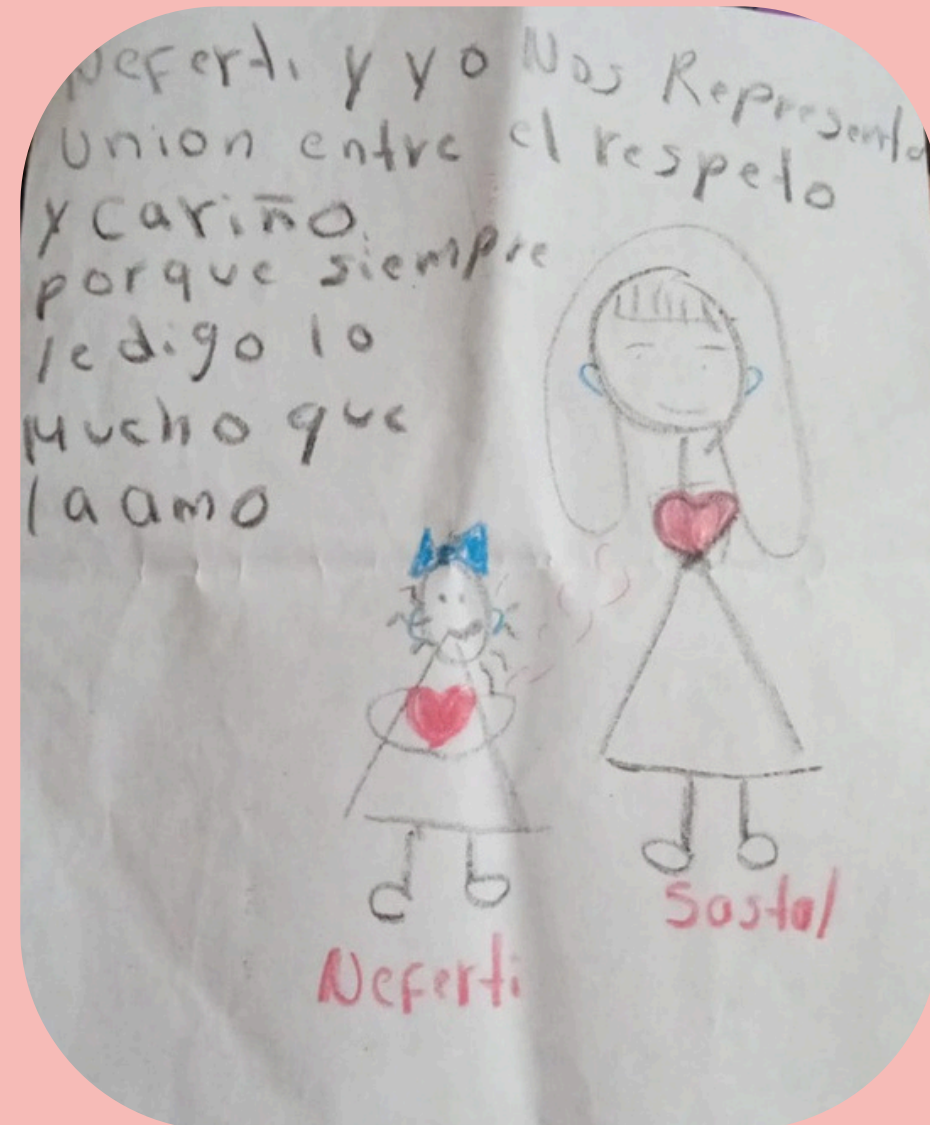 Neferti y yo Nos Representa
Union entre el respeto
y cariño.
porque siempre
le digo lo
Mucho que
la amo
Sastal
Neferti